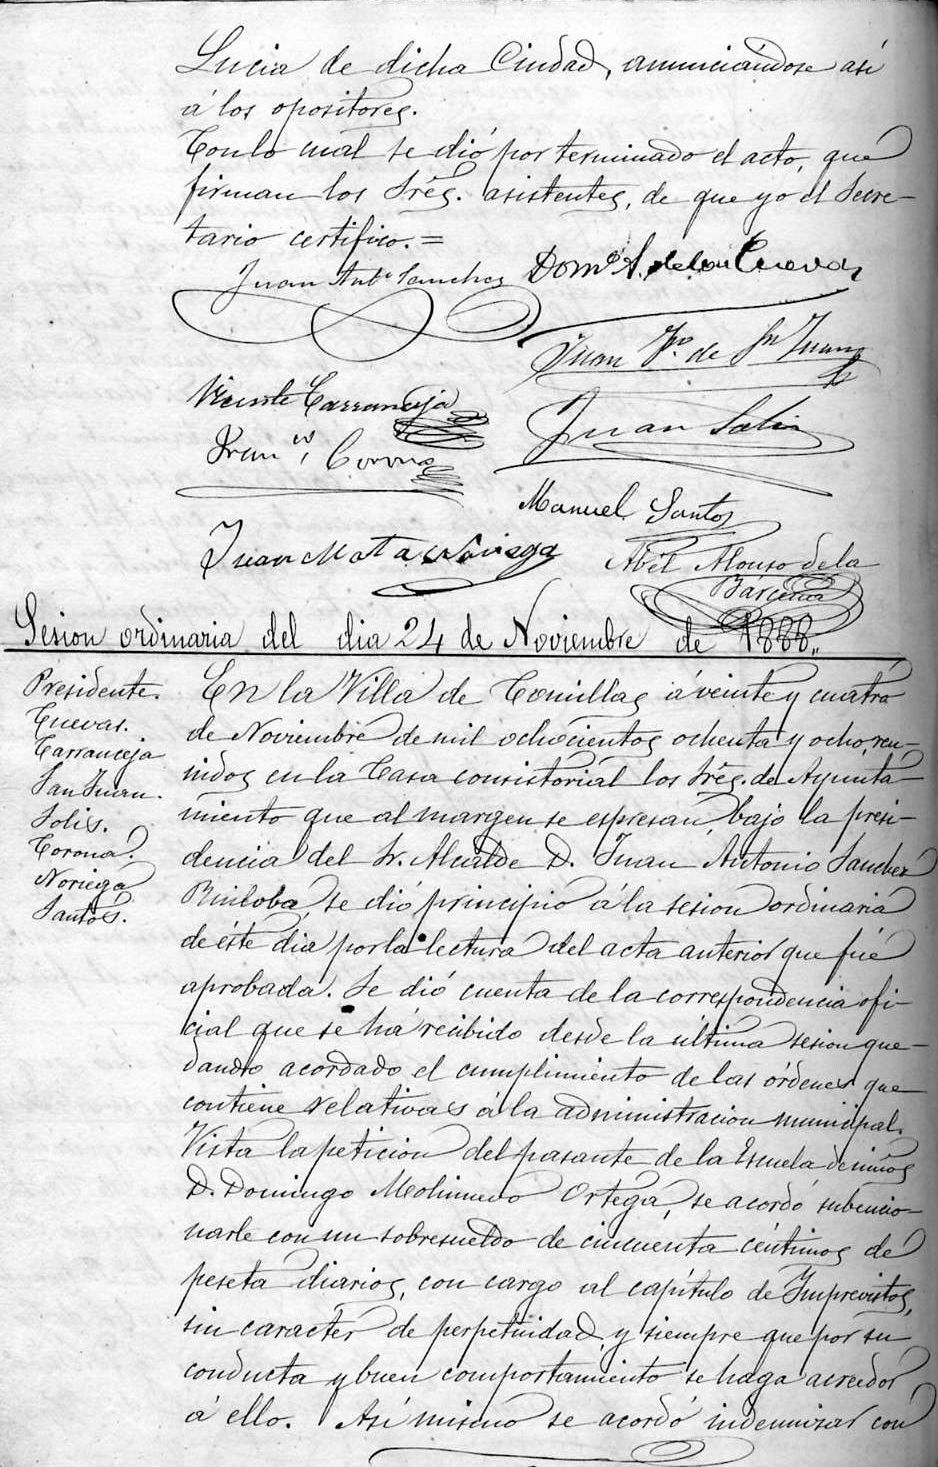 Lucia de dicha Ciudad, anunciándose así
á los opositores.
Con lo cual se dió por terminado el acto, que
firman los Srês. asistentes, de que yo el Secre-
tario certifico.=
Juan Antº Sanchez
Domº S. de las Cuevas
Juan Fº. de Sn Juan
Vicente Carranceja
Juan Solis
Franco, Corona
Manuel Santos
Juan Mata Noriega
Abel Alonso de la
Bárcena
Sesion ordinaria del dia 24 de Noviembre de 1888.
Presidente.
Cuevas.
Carranceja
San Juan.
Solis.
Corona.
Noriega
Santos.
En la Villa de Comillas á veinte y cuatro
de Noviembre de mil ochocientos ochenta y ocho, reu-
nidos en la Casa consistorial los Srês. de Ayunta-
miento que al margen se espresan, bajo la presi-
dencia del Sr. Alcalde D. Juan Antonio Sanchez
se dió principio á la sesion ordinaria
de éste dia por la lectura del acta anterior que fué
aprobada. Se dió cuenta de la correspondencia ofi-
cial que se há recibido desde la última sesion que-
dando acordado el cumplimiento de las órdenes que
contiene relativas á la administracion municipal.
Vista la peticion del pasante de la Escuela de niños
D. Domingo Molinuevo Ortega, se acordó subencio-
narle con un sobresueldo de cincuenta céntimos de
peseta diarios, con cargo al capítulo de Imprevistos,
sin caracter de perpetuidad, y siempre que por su
conducta y buen comportamiento se haga acreedor
á ello. Así mismo se acordó indemnizar con